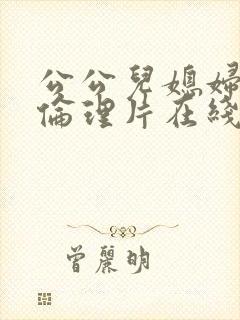 公公兒媳婦
倫理片在綫
曾麗明